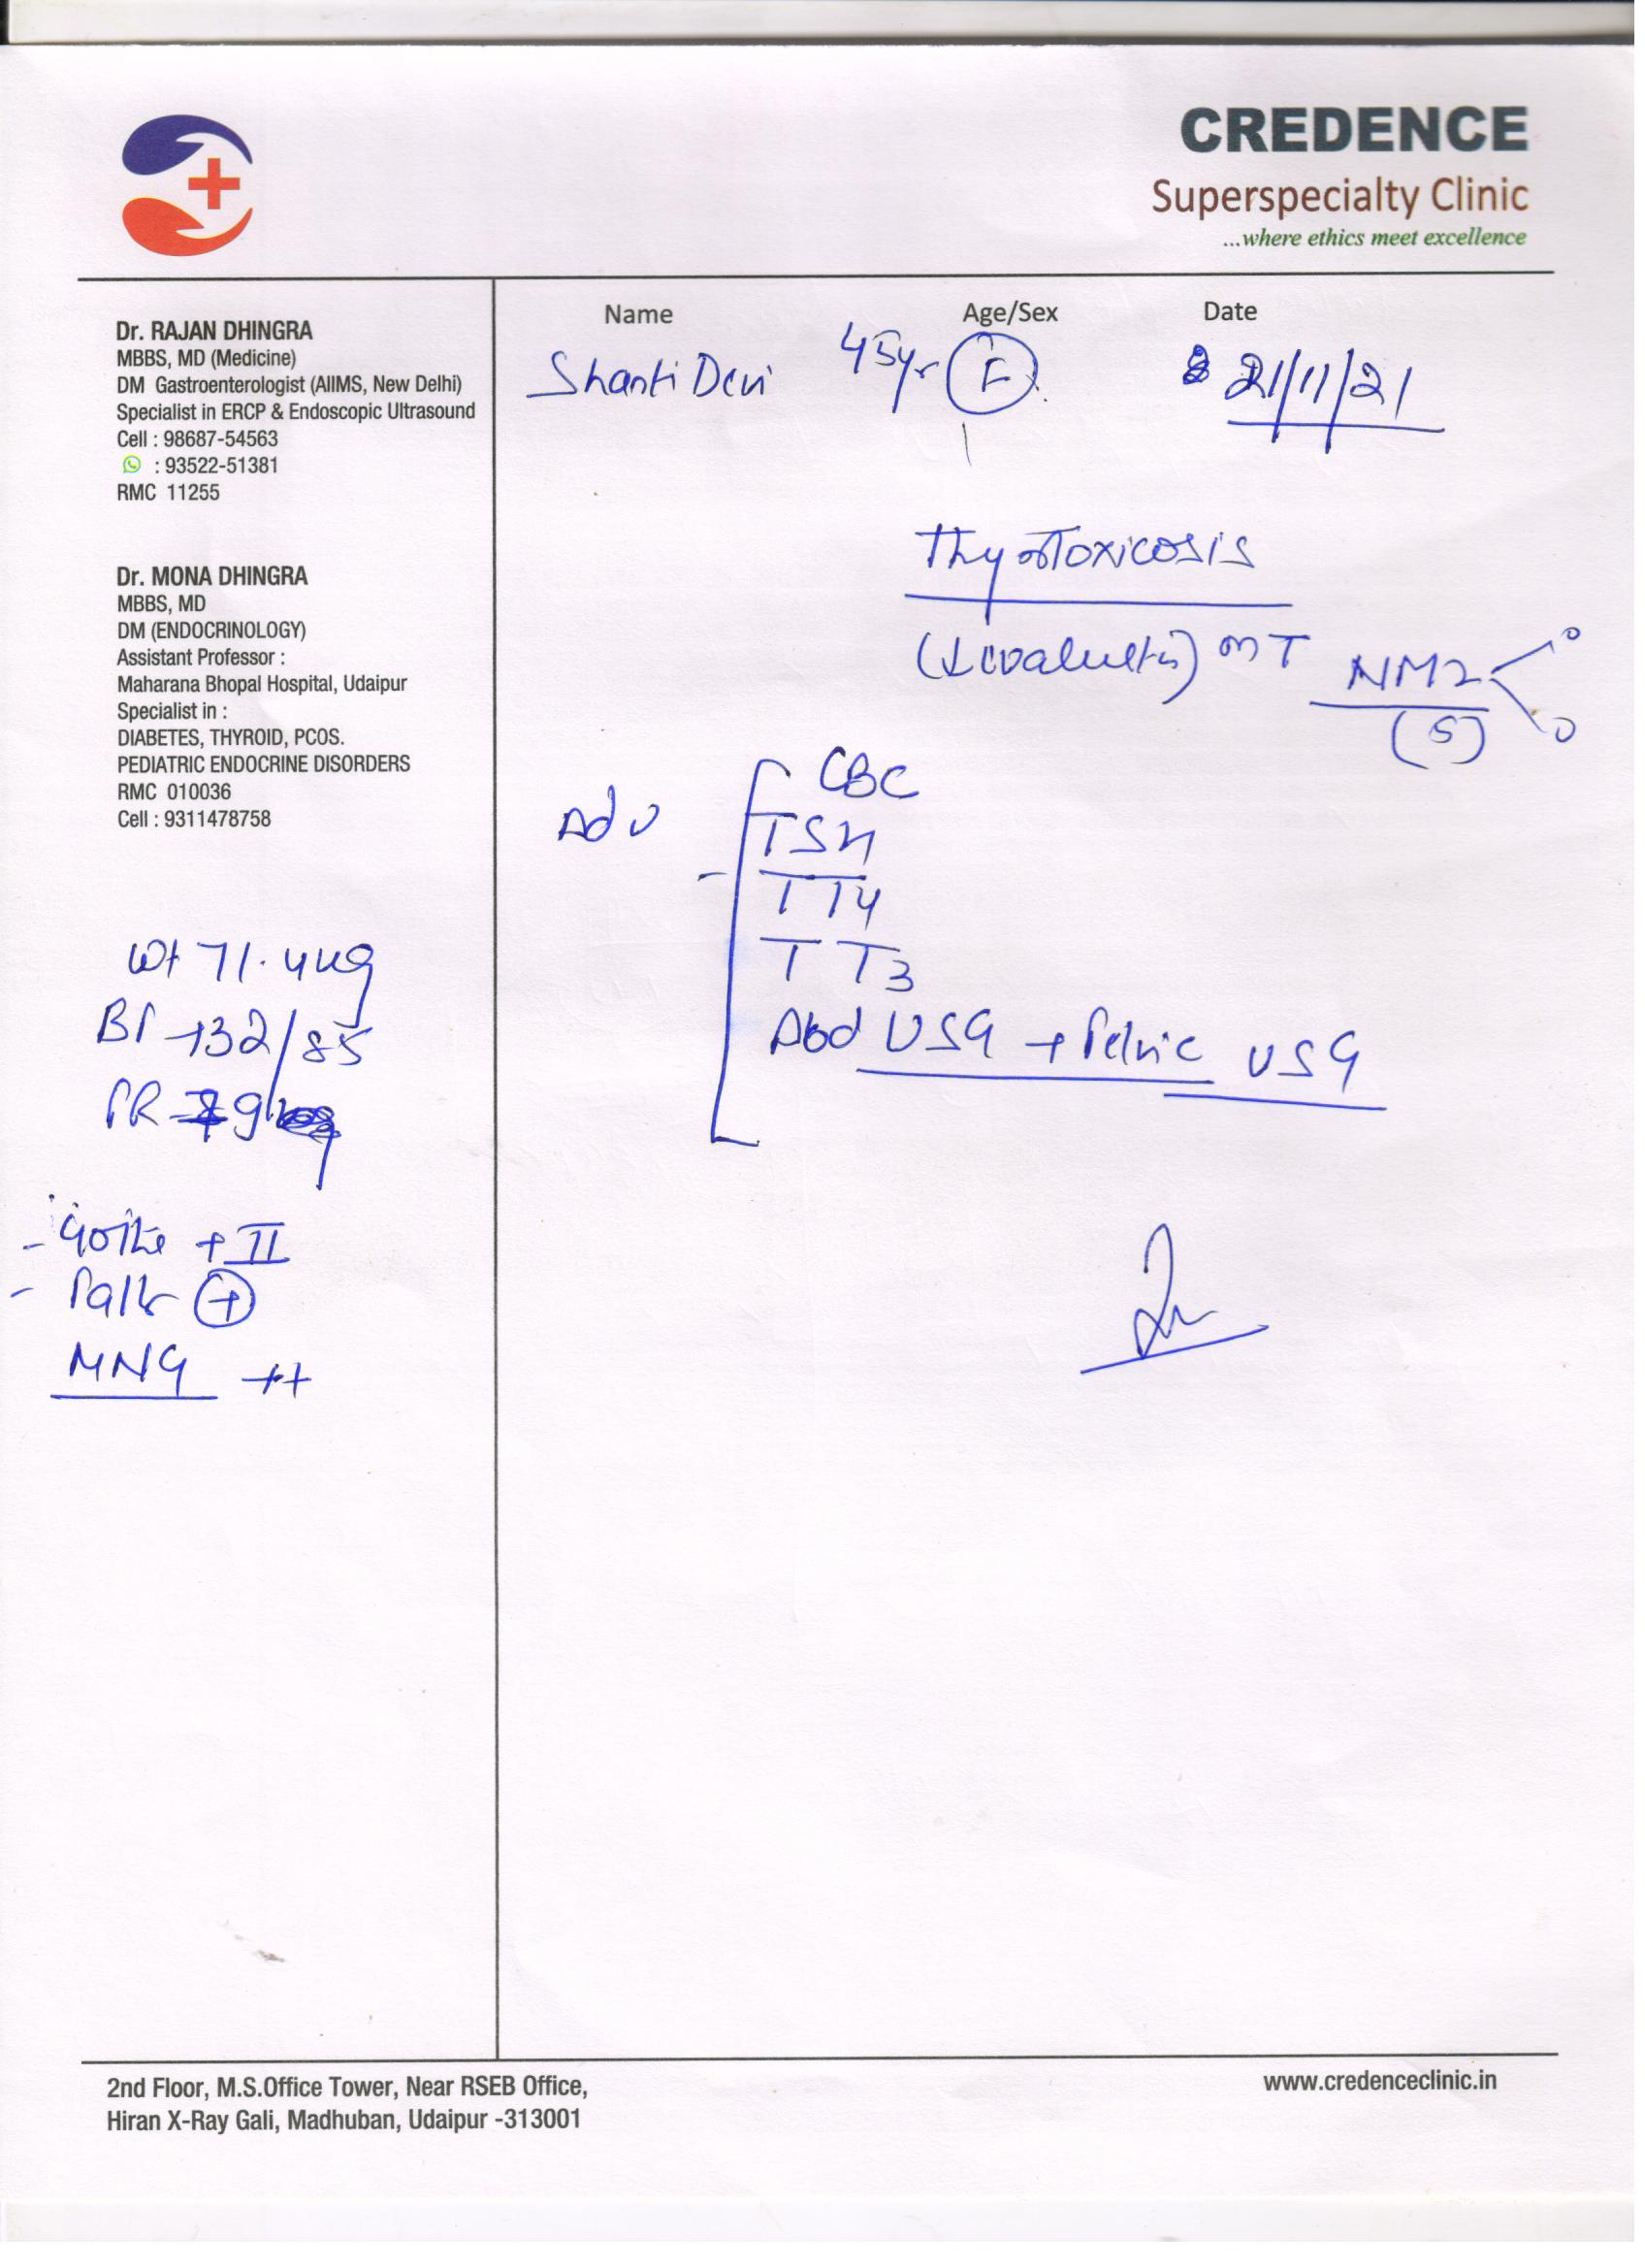 CREDENCE
Superspecialty Clinic
...where ethics meet excellence
Name Age/Sex Date
Shanti Devi 45yr F 21/11/21
Dr. RAJAN DHINGRA
MBBS, MD (Medicine)
DM Gastroenterologist (AIIMS, New Delhi)
Specialist in ERCP & Endoscopic Ultrasound
Cell : 98687-54563
: 93522-51381
RMC 11255
Dr. MONA DHINGRA
MBBS, MD
DM (ENDOCRINOLOGY)
Assistant Professor :
Maharana Bhopal Hospital, Udaipur
Specialist in :
DIABETES, THYROID, PCOS.
PEDIATRIC ENDOCRINE DISORDERS
RMC 010036
Cell : 9311478758
Wt 71.4kg
BP -132/85
PR
- Goitre + II
- +
MNG ++
Thyrotoxicosis
on T
(5)
Adv
CBC
TSH
T T4
T T3
Abd USG + Pelvic USG
2nd Floor, M.S.Office Tower, Near RSEB Office,
Hiran X-Ray Gali, Madhuban, Udaipur -313001
www.credenceclinic.in